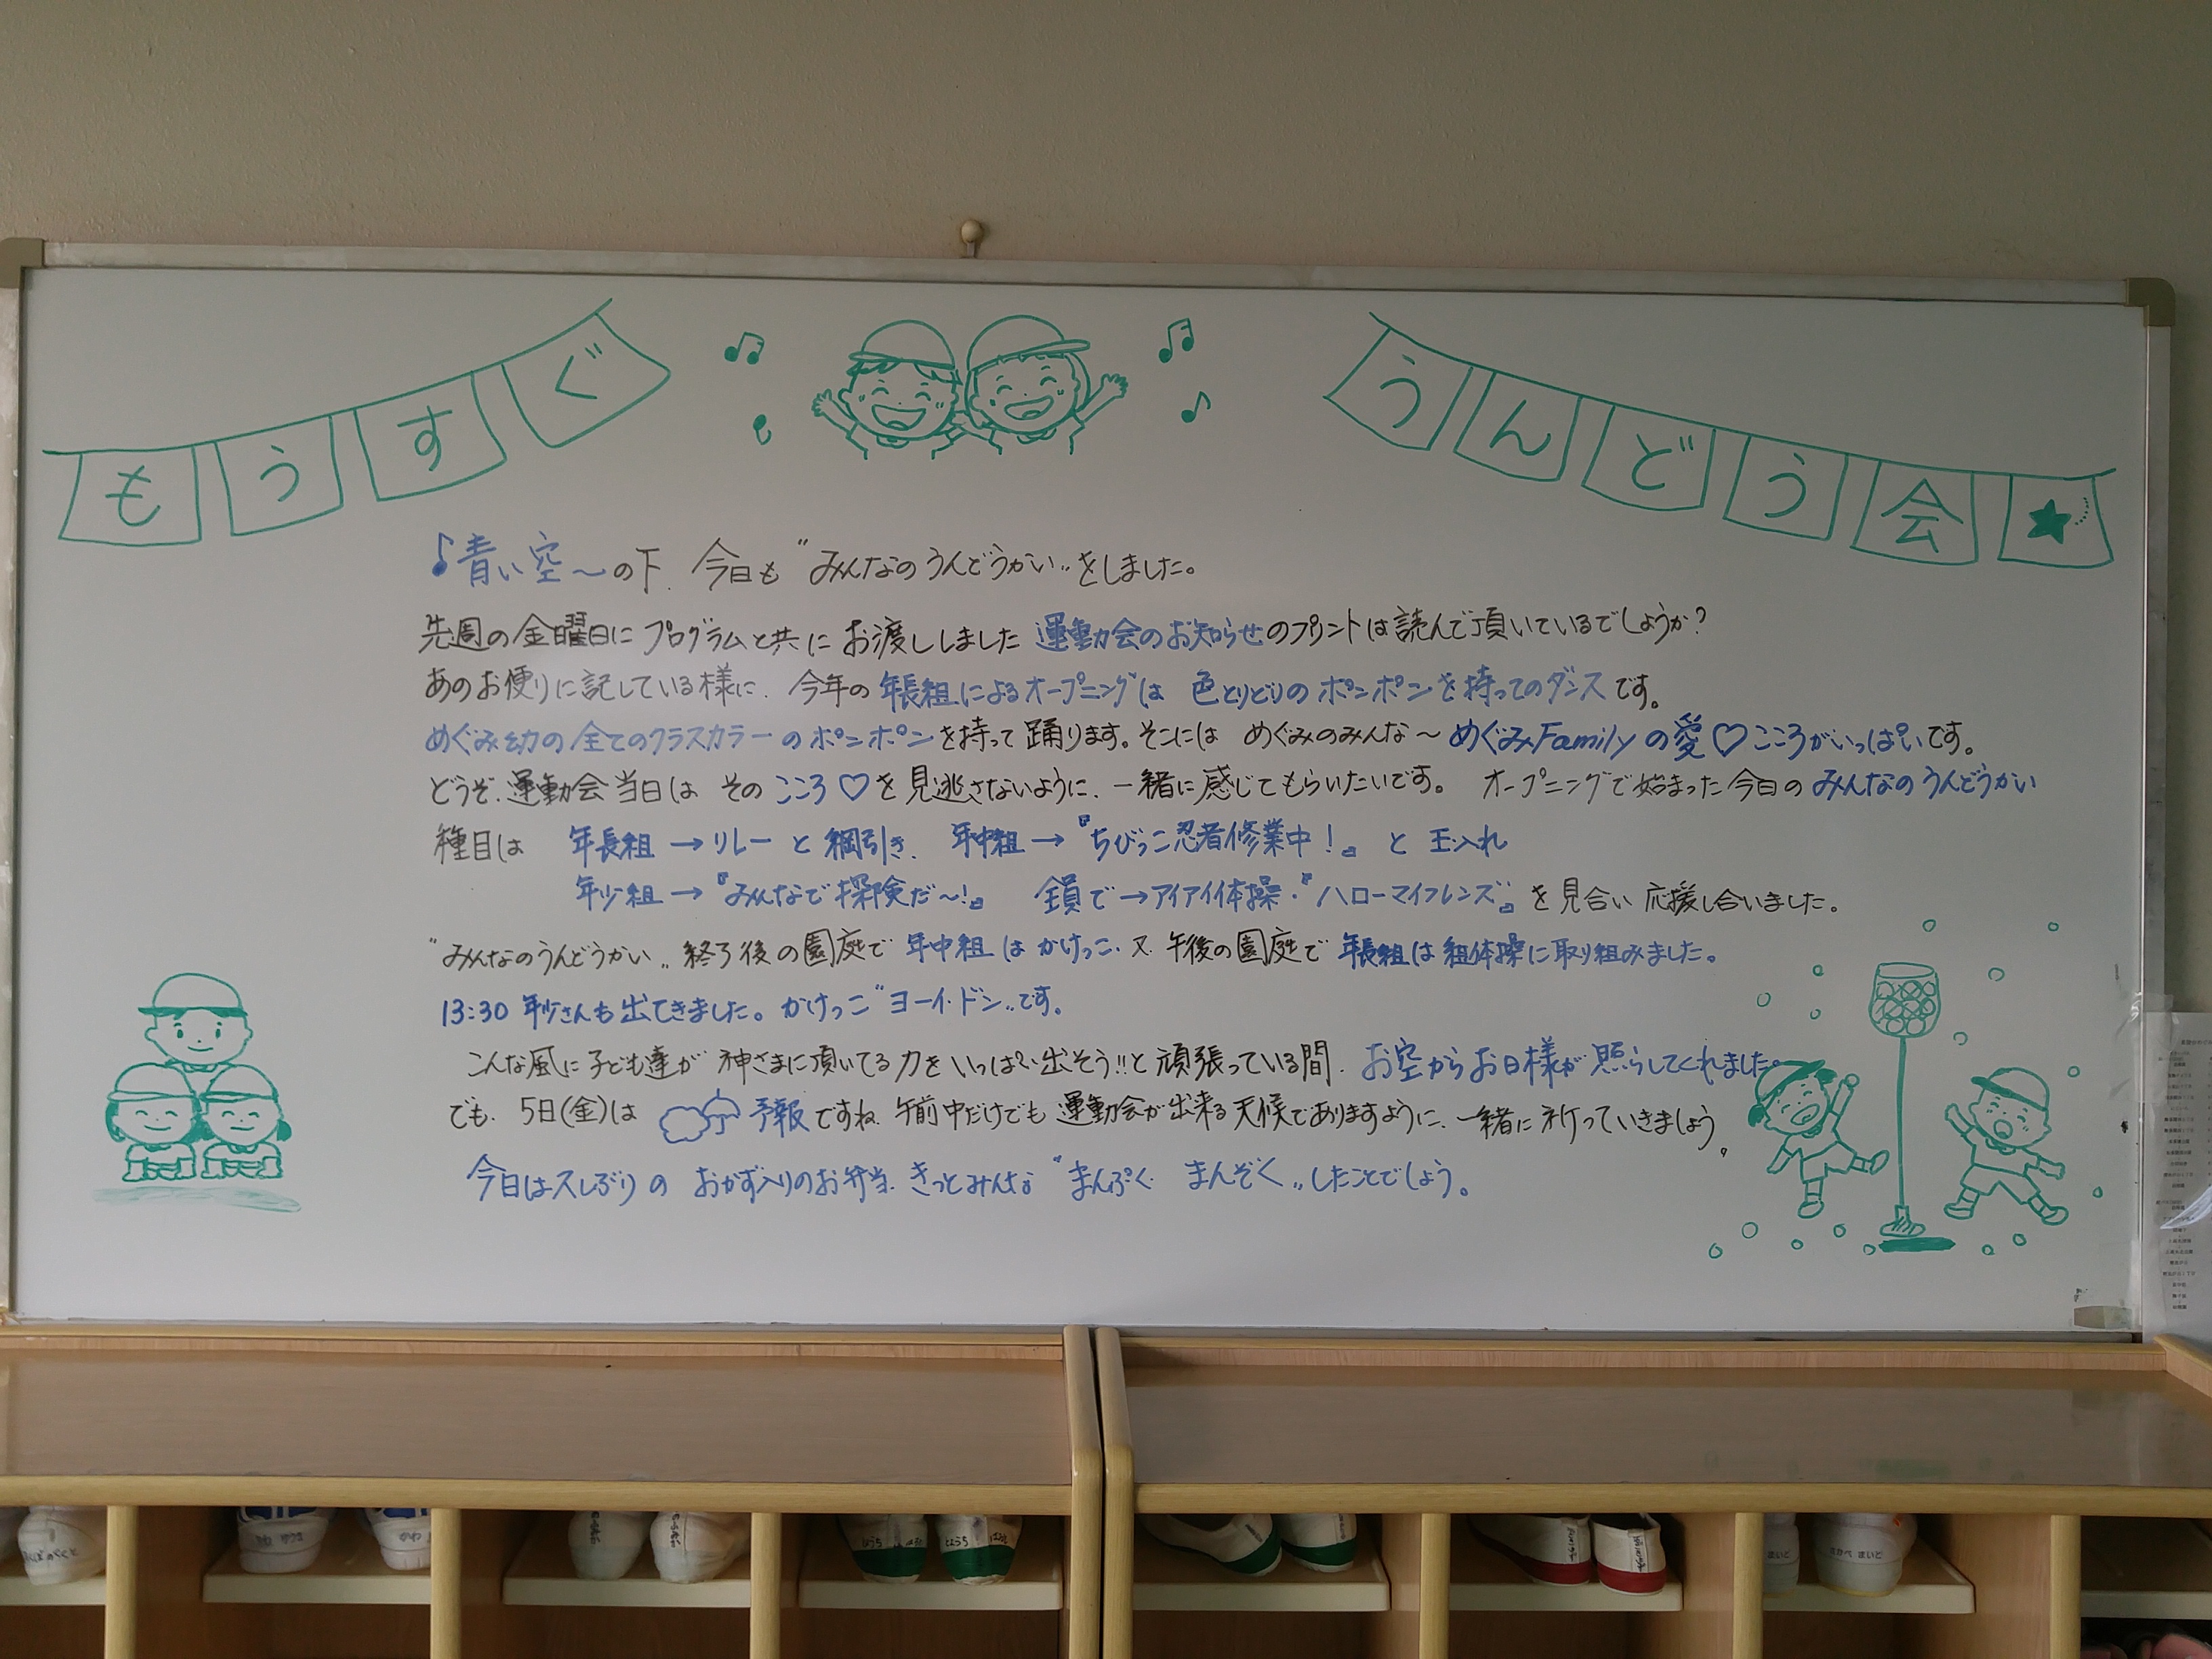 もうすぐ
うんどう会★
♪青い空〜の下、今日も〝みんなのうんどうかい〟をしました。
先週の金曜日にプログラムと共にお渡ししました運動会のお知らせのプリントは読んで頂いているでしょうか?
あのお便りに記している様に、今年の年長組によるオープニングは色とりどりのポンポンを持ってのダンスです。
めぐみ幼の全てのクラスカラーのポンポンを持って踊ります。そこにはめぐみのみんな〜めぐみFamilyの愛♡こころがいっぱいです。
どうぞ、運動会当日はそのこころ♡を見逃さないように、一緒に感じてもらいたいです。オープニングで始まった今日のみんなのうんどうかい
種目は 年長組→リレーと綱引き、年中組→『ちびっこ忍者修業中!』と玉入れ
年少組→『みんなで探険だ〜!』 全員で→アイアイ体操・『ハローマイフレンズ』を見合い応援し合いました。
〝みんなのうんどうかい〟終了後の園庭で年中組はかけっこ、又、午後の園庭で年長組は組体操に取り組みました。
13:30 年少さんも出てきました。かけっこ〝ヨーイ・ドン〟です。
こんな風に子ども達が神さまに頂いてる力をいっぱい出そう!!と頑張っている間、お空からお日様が照らしてくれました。
でも、5日(金)は予報ですね、午前中だけでも運動会が出来る天候でありますように、一緒に祈っていきましょう。
今日は久しぶりのおかず入りのお弁当、きっとみんな〝まんぷく まんぞく〟したことでしょう。